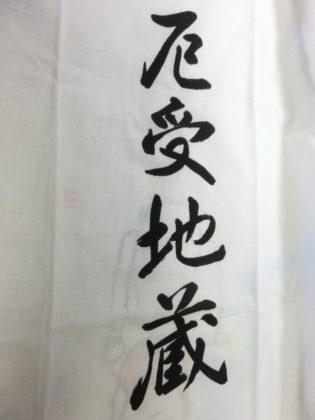 厄受地蔵